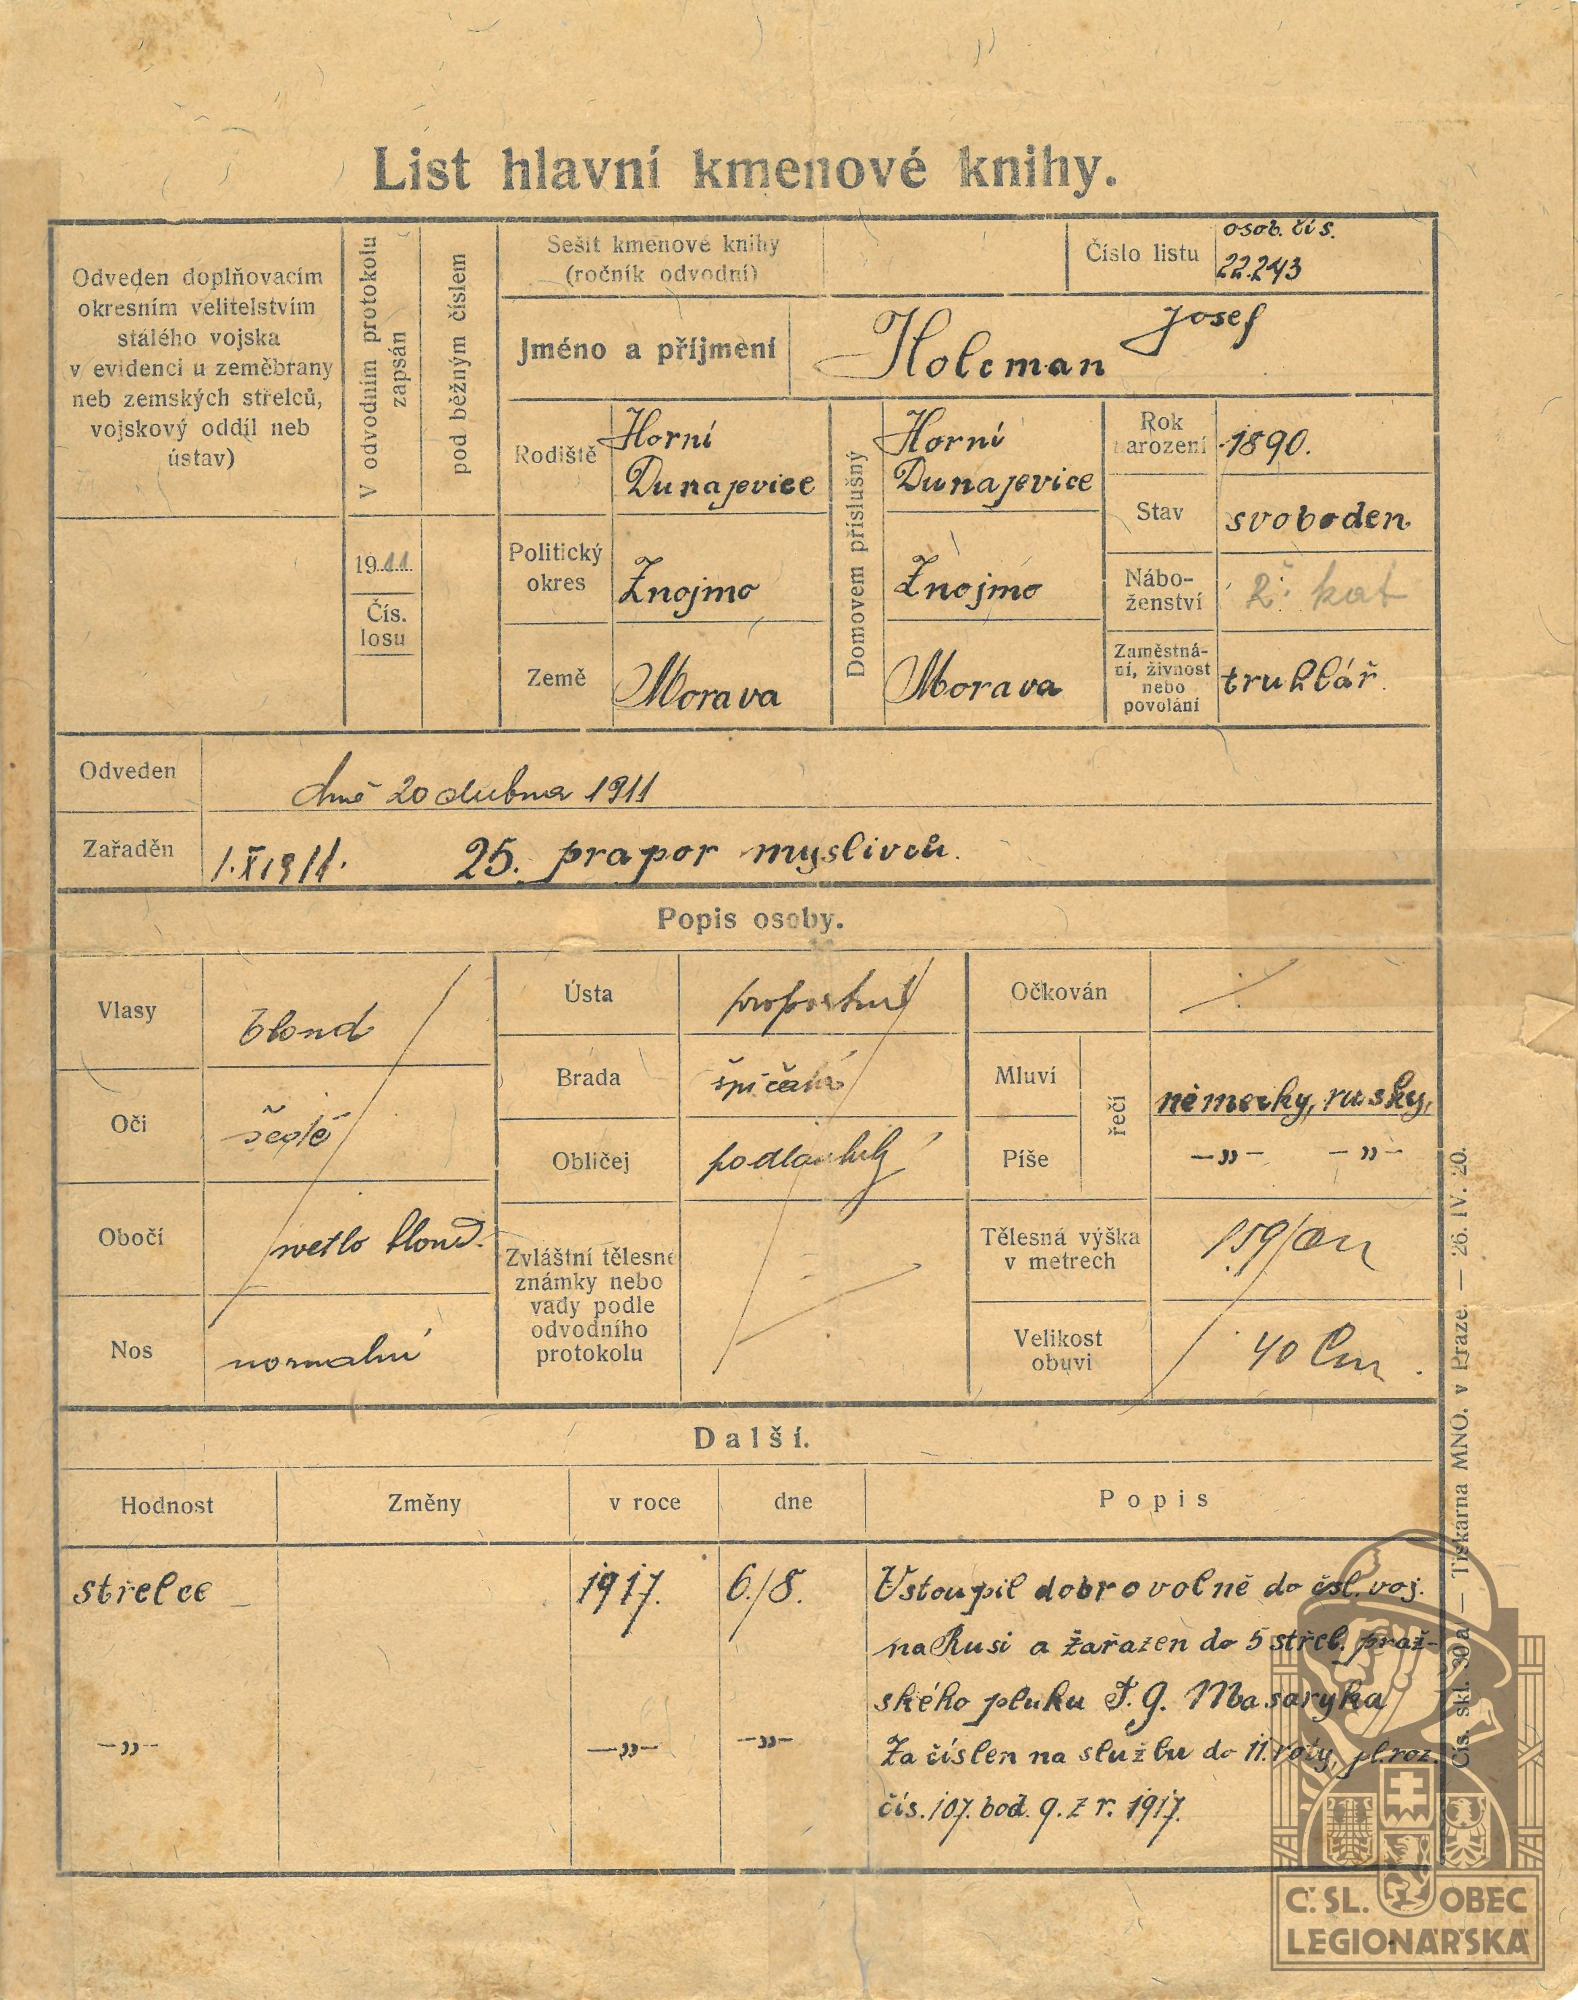 List hlavní kmenové knihy.
Odveden doplňovacím
okresním velitelstvím
stálého vojska
v evidenci u zeměbrany
neb zemských střelců,
vojskový oddíl neb
ústav)
V odvodním protokolu
zapsán
pod běžným číslem
1911.
Čís.
losu
Sešit kmenové knihy
(ročník odvodní)
Číslo listu
osob. čís.
22.243
Jméno a příjmení
Josef
Holcman
Rodiště
Horní
Dunajevice
Domovem příslušný
Horní
Dunajevice
Rok
narození
1890.
Stav
svoboden
Politický
okres
Znojmo
Znojmo
Nábo-
ženství
Ř: kat
Země
Morava
Morava
Zaměstná-
ní, živnost
nebo
povolání
truhlář.
Odveden
dne 20 dubna 1911
Zařaděn
1.X1911.
25. prapor myslivců.
Popis osoby.
Vlasy
blond
Ústa
Očkován
Oči
šedé
Brada
špičatá
Mluví
řečí
německy, rusky,
Obličej
podlouhlý
Píše
—„— —„—
Obočí
světlo blond.
Zvláštní tělesné
známky nebo
vady podle
odvodního
protokolu
Tělesná výška
v metrech
159 cm
Nos
normalní
Velikost
obuvi
40 Cm.
Další.
Hodnost
Změny
v roce
dne
Popis
střelec
1917.
6./8.
Vstoupil dobrovolně do čsl. voj.
na Rusi a zařazen do 5 střel. praž-
ského pluku T. G. Masaryka
—„—
—„—
—„—
Začíslen na službu do 11. roty, pl. roz.
čís. 107. bod. 9. z r. 1917.
Čís. skl. 30a — Tiskárna MNO. v Praze. — 26. IV. 20.
Č.SL. OBEC
LEGIONÁŘSKÁ